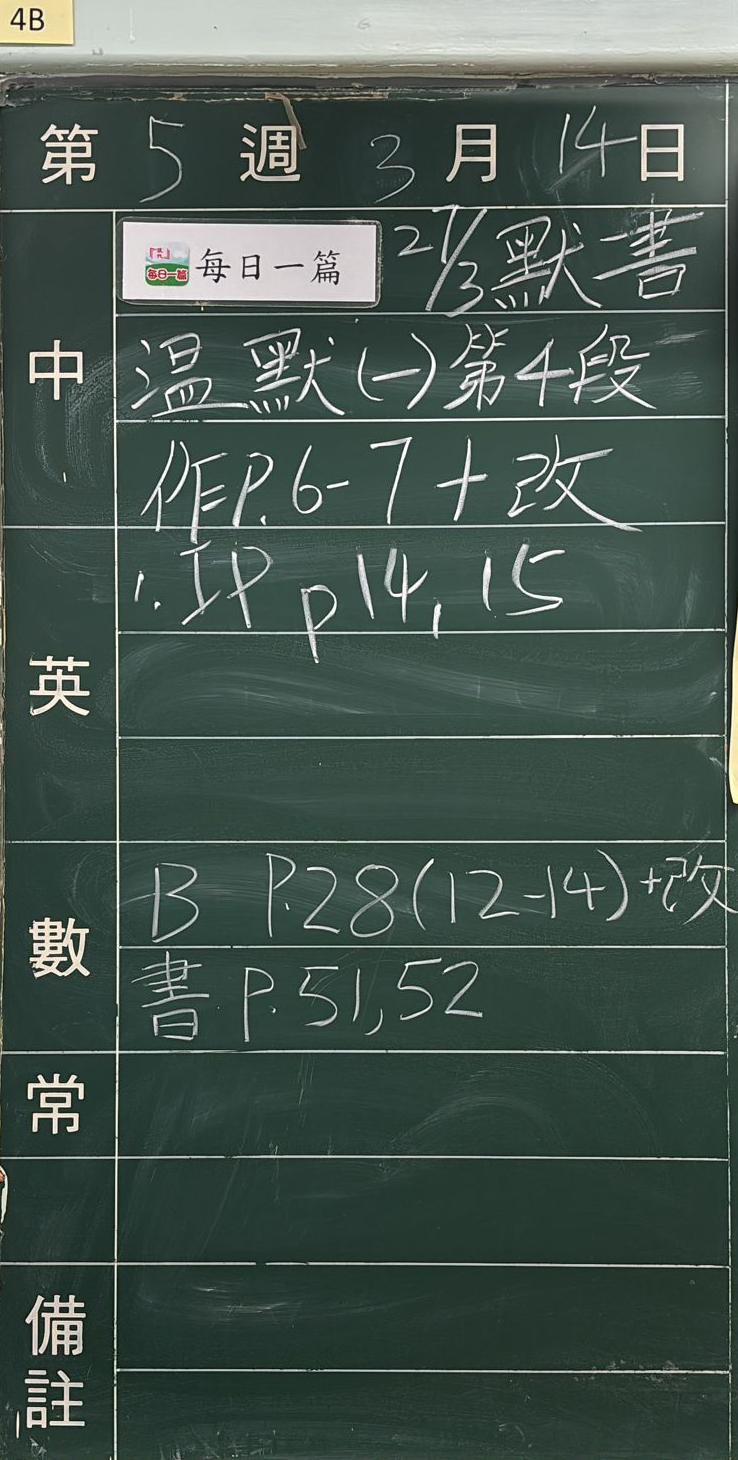 4B
第 5 週 3 月 14 日
中
每日一篇 每日一篇 27/3 默書
温 默(一)第4段
作P.6-7+改
英
1. IP p14, 15
數
B P.28(12-14)+改
書 P.51,52
常
備註